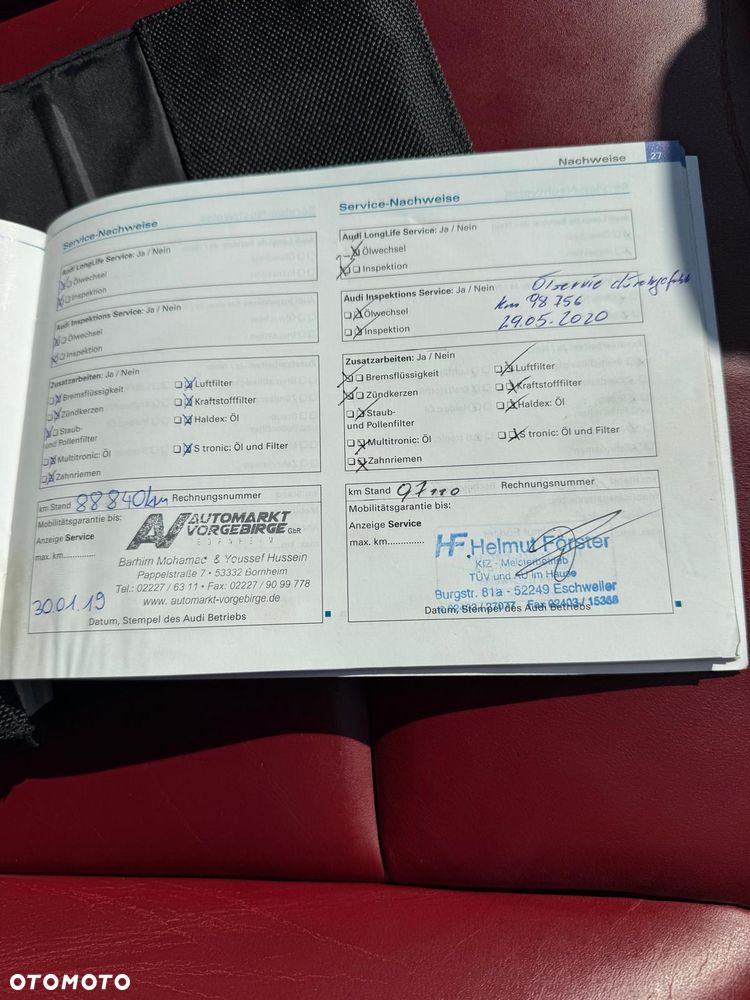 Nachweise 27
Service-Nachweise
Audi LongLife Service: Ja / Nein
Ölwechsel
Inspektion
Audi Inspektions Service: Ja / Nein
Ölwechsel
Inspektion
Zusatzarbeiten: Ja / Nein
Bremsflüssigkeit
Zündkerzen
Staub-
und Pollenfilter
Multitronic: Öl
Zahnriemen
Luftfilter
Kraftstofffilter
Haldex: Öl
S tronic: Öl und Filter
km Stand 88840km Rechnungsnummer
Mobilitätsgarantie bis:
Anzeige Service
max. km..............
AV AUTOMARKT
VORGEBIRGE GbR
BORNHEIM
Barhim Mohamad & Youssef Hussein
Pappelstraße 7 • 53332 Bornheim
Tel.: 02227 / 63 11 • Fax: 02227 / 90 99 778
www. automarkt-vorgebirge.de
30.01.19
Datum, Stempel des Audi Betriebs
Service-Nachweise
Audi LongLife Service: Ja / Nein
Ölwechsel
Inspektion
Audi Inspektions Service: Ja / Nein
Ölwechsel
Inspektion
Ölservice durchgeführt
km 98 756
29.05.2020
Zusatzarbeiten: Ja / Nein
Bremsflüssigkeit
Zündkerzen
Staub-
und Pollenfilter
Multitronic: Öl
Zahnriemen
Luftfilter
Kraftstofffilter
Haldex: Öl
S tronic: Öl und Filter
km Stand 97110 Rechnungsnummer
Mobilitätsgarantie bis:
Anzeige Service
max. km..............
HF. Helmut Förster
KfZ - Meisterbetrieb
TÜV und AU im Hause
Burgstr. 81a - 52249 Eschweiler
Fax 02403 / 15368
Datum, Stempel des Audi Betriebs
OTOMOTO